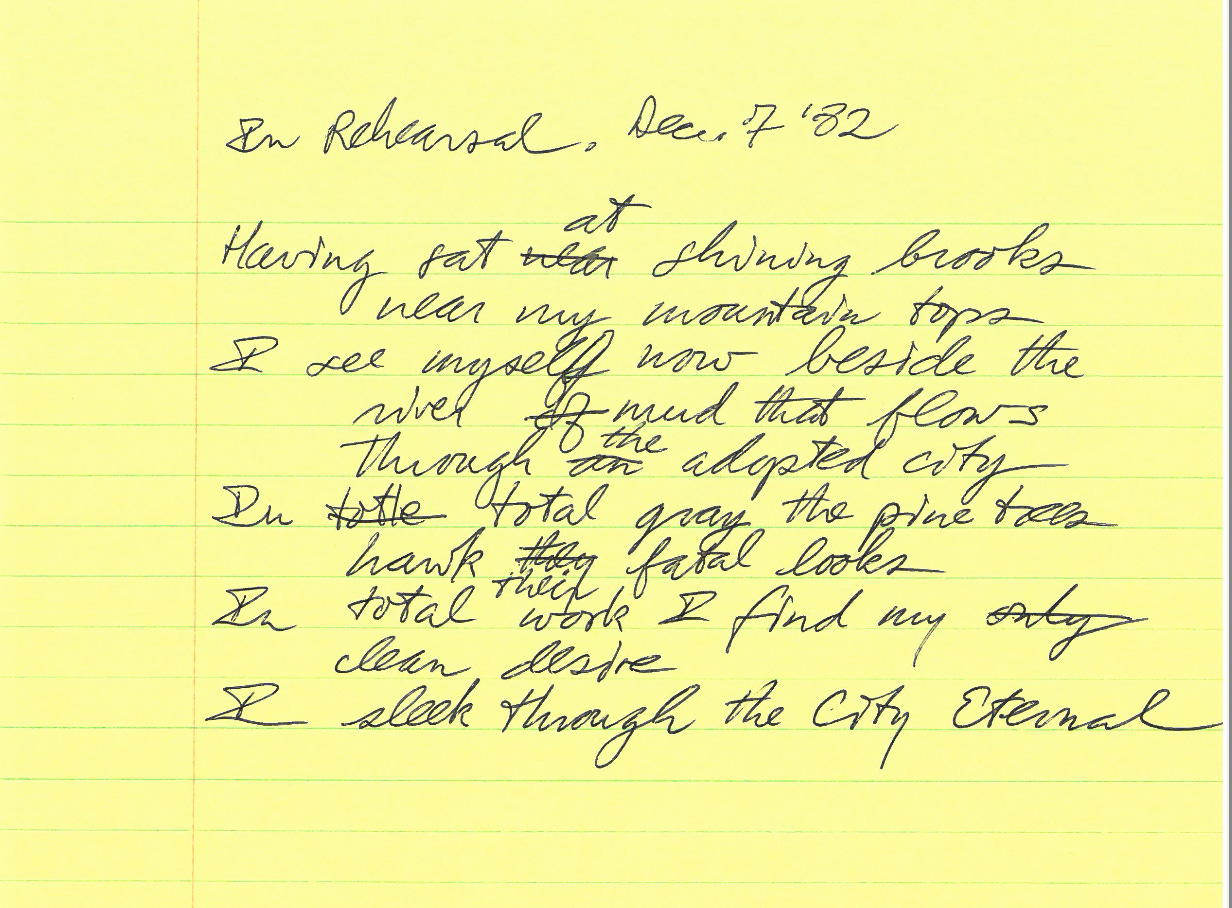 In Rehearsal. Dec. 7 '82
at
Having sat near shining brooks
near my mountain tops
I see myself now beside the
river of mud that flows
the
Through an adopted city
In totle total gray the pine trees
hawk they fatal looks
their
In total work I find my only
clean desire
I sleek through the City Eternal